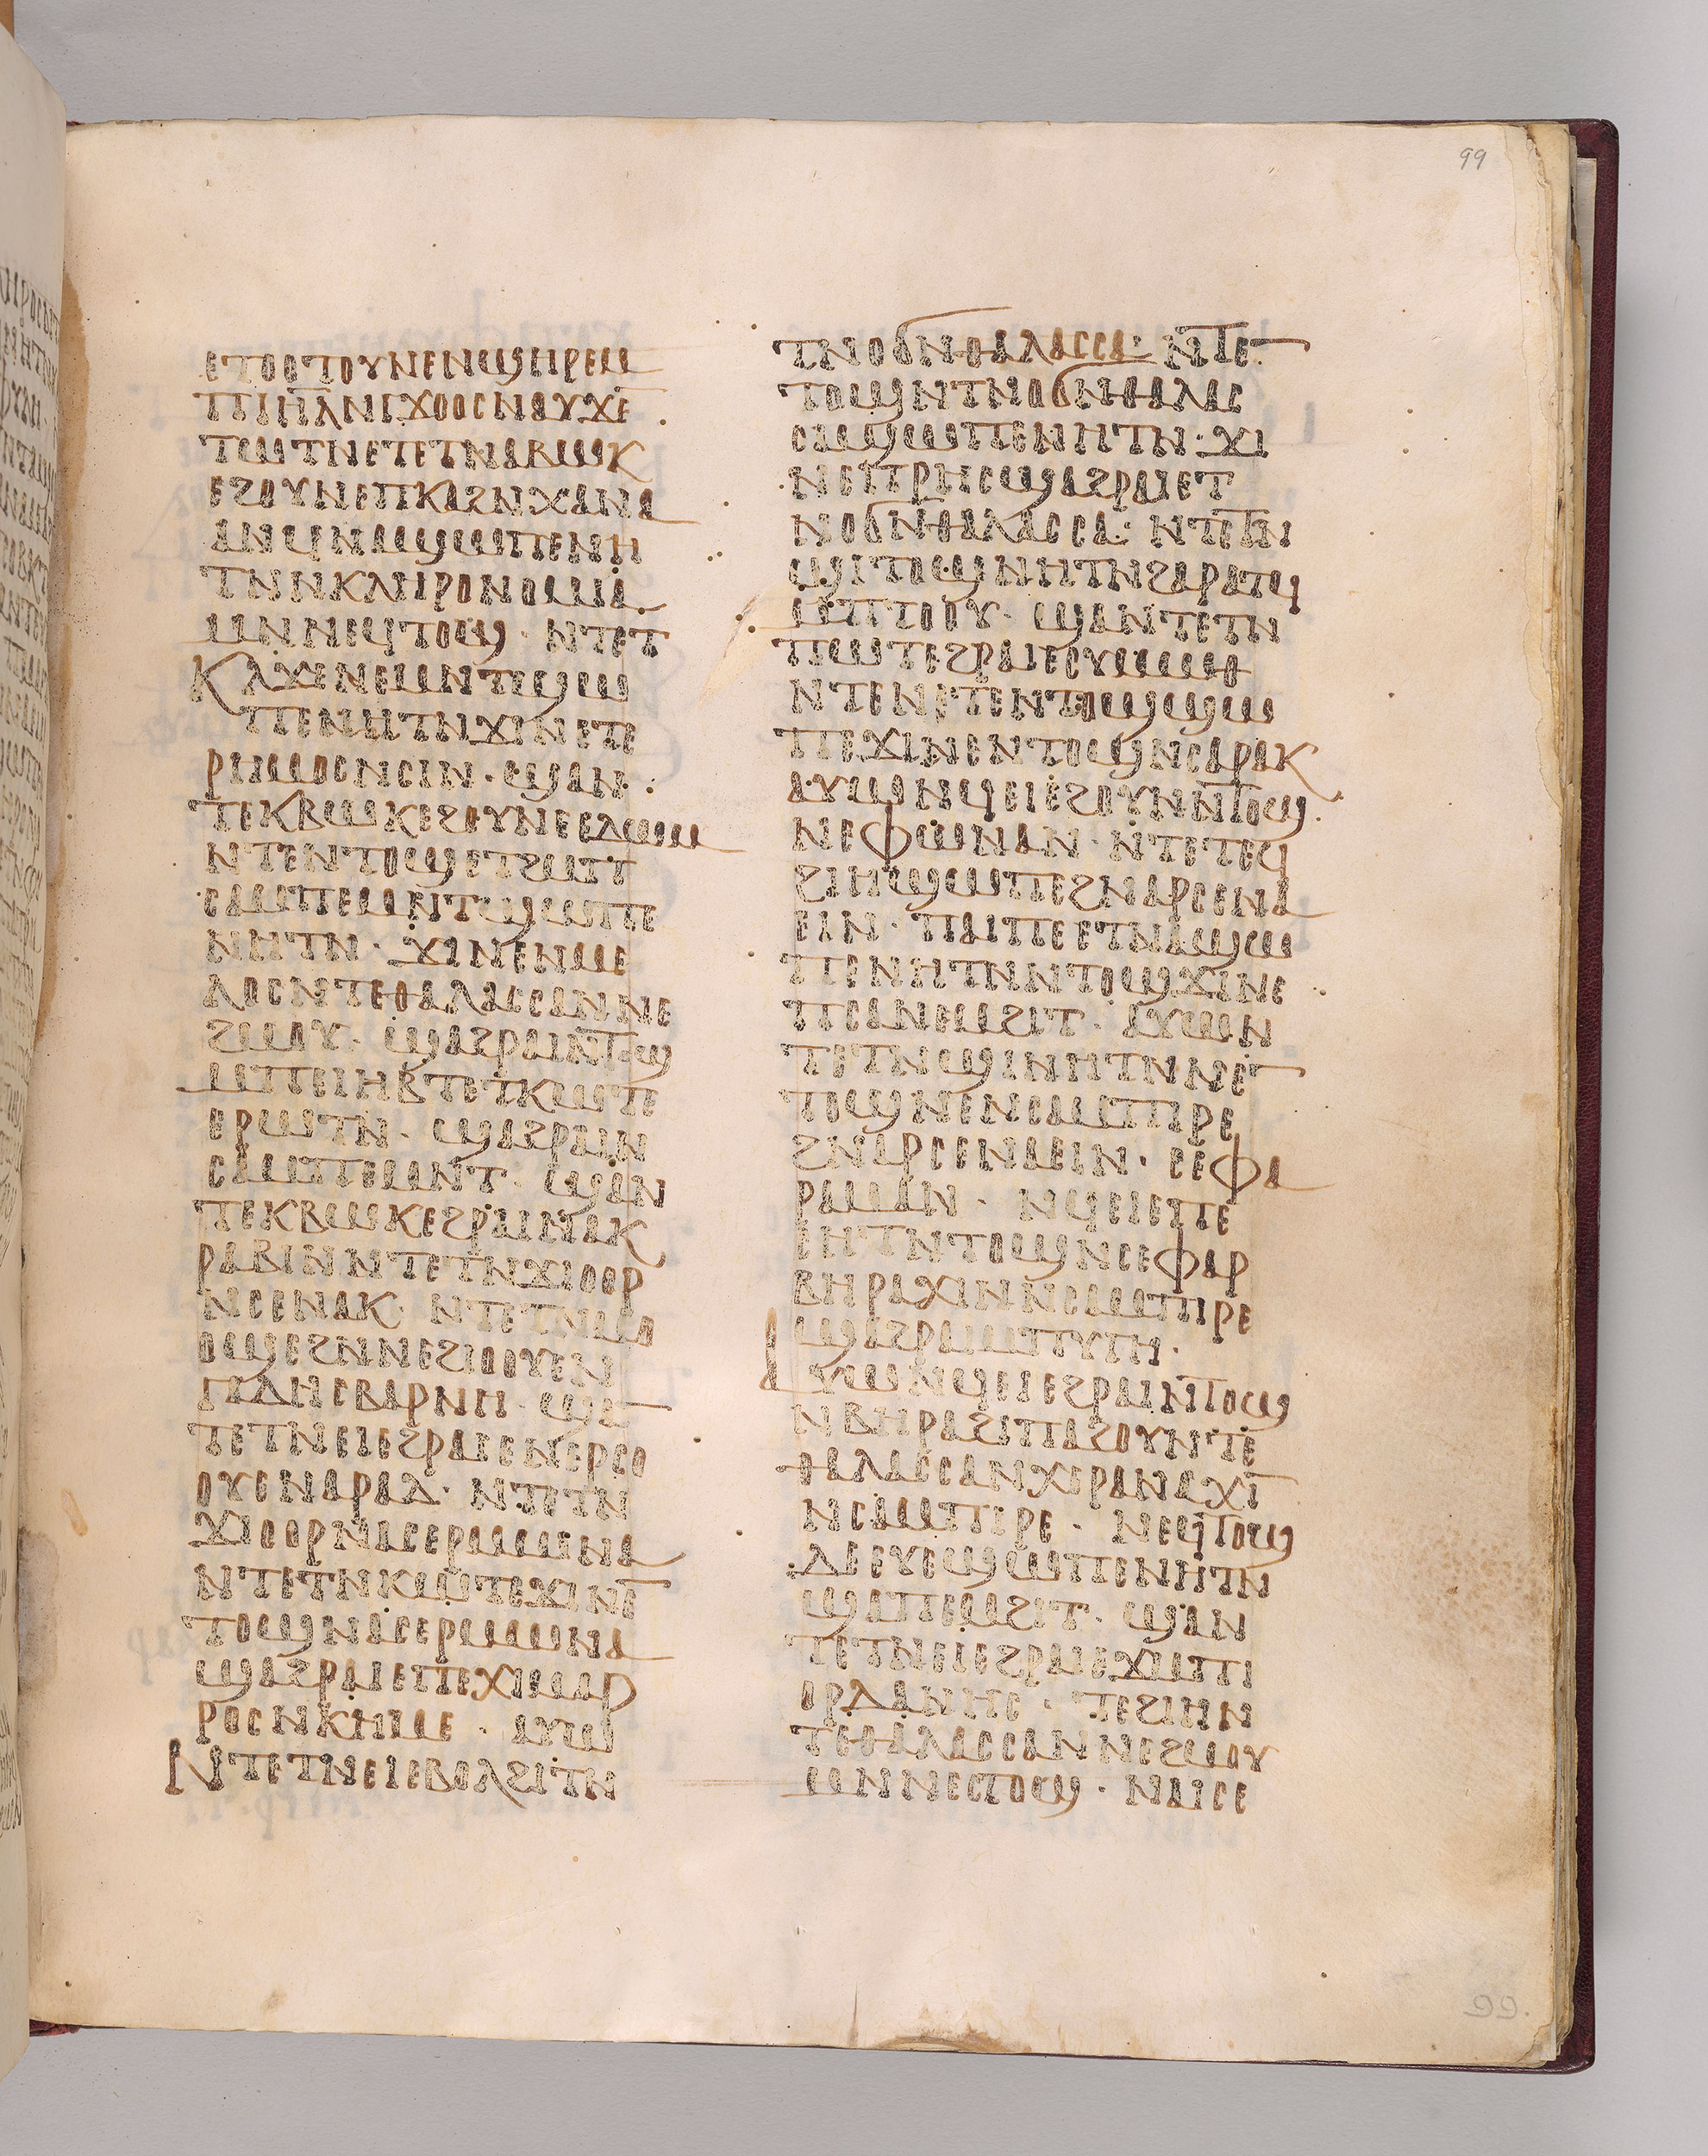 99
ⲉⲧⲟⲟⲧⲟⲩⲛⲉⲛϣⲏⲣⲉⲙ
ⲡⲓⲏ̅ⲗ̅ⲛⲅϫⲟⲟⲥⲛⲁⲩϫⲉ
ⲧⲱⲧⲛⲉⲧⲉⲧⲛⲁⲃⲱⲕ
ⲉϩⲟⲩⲛⲉⲡⲕⲁϩⲛⲭⲁⲛⲁ
ⲁⲛϥⲛⲁϣⲱⲡⲉⲛⲏ
ⲧⲛⲛⲕⲗⲏⲣⲟⲛⲟⲙⲓⲁ
ⲙⲛⲛⲉϥⲧⲟϣ · ⲛⲧⲉⲧ
ⲕⲗϫⲉⲛⲉⲙⲛⲧϣⲱ
ⲡⲉⲛⲏⲧⲛϫⲓⲛⲉⲧⲉ
ⲣⲏⲙⲟⲥⲛⲥⲓⲛ · ϣⲁⲛ
ⲧⲉⲕⲃⲱⲕⲉϩⲟⲩⲛⲉⲉⲇⲱⲙ
ⲛⲧⲉⲛⲧⲟϣⲉⲧϩⲙⲡ
ⲥⲁⲙⲡⲉⲙⲛⲧϣⲱⲡⲉ
ⲛⲏⲧⲛ · ϫⲓⲛⲉⲛⲙⲉ
ⲗⲟⲥⲛⲧⲉⲑⲁⲗⲁⲥⲥⲁⲛⲛⲉ
ϩⲙⲟⲩ · ϣⲁϩⲣⲁⲓⲛⲧⲟϣ
ⲙⲡⲉⲓⲏⲃⲧⲉⲧⲕⲱⲧⲉ
ⲉⲣⲱⲧⲛ · ϣⲁϩⲣⲁⲓⲛ
ⲥⲁⲙⲡⲉⲙⲛⲧ · ϣⲁⲛ
ⲧⲉⲕⲃⲱⲕⲉϩⲣⲁⲓⲛⲁⲕ
ⲣⲁⲃⲓⲛⲛⲧⲉⲧⲛϫⲓⲟⲟⲣ
ⲛⲥⲉⲛⲁⲕ · ⲛⲧⲉⲧⲛⲙⲟ
ⲟϣⲉϩⲛⲛⲉϩⲓⲟⲟⲩⲉⲛ
ⲅⲁⲇⲏⲥⲃⲁⲣⲛⲏ · ϣⲁ
ⲧⲉⲧⲛⲉⲓⲉϩⲣⲁⲓⲉⲛⲉⲣⲥⲟ
ⲟⲩⲉⲛⲁⲣⲁⲇ · ⲛⲧⲉⲧⲛ
ϫⲓⲟⲟⲣⲛⲁⲥⲉⲣⲙⲱⲛⲁ
ⲛⲧⲉⲧⲛⲕⲱⲧⲉϫⲓⲛⲉ
ⲧⲟϣⲛⲁⲥⲉⲣⲙⲱⲛⲁ
ϣⲁϩⲣⲁⲓⲉⲡⲉⲭⲓⲙⲁⲣ
ⲣⲟⲥⲛⲕⲏⲙⲉ · ⲁⲩⲱ
ⲛⲧⲉⲧⲛⲉⲓⲉⲃⲟⲗϩⲓⲧⲛ
ⲧⲛⲟϭⲛⲑⲁⲗⲁⲥⲥⲁ · ⲛⲧⲉ
ⲧⲟϣⲛⲧⲛⲟϭⲛⲑⲁⲗⲁⲥ
ⲥⲁϣⲱⲡⲉⲛⲏⲧⲛ · ϫⲓ
ⲛⲉⲓⲧⲣⲏⲥϣⲁϩⲣⲁⲓⲉⲧ
ⲛⲟϭⲛⲑⲁⲗⲁⲥⲥⲁ : ⲛⲧⲉⲧⲛ
ϣⲓⲧⲟϣⲛⲏⲧⲛϩⲁⲣⲁⲧϥ
ⲙⲡⲧⲟⲟⲩ · ϣⲁⲛⲧⲉⲧⲛ
ⲡⲱⲧⲉϩⲣⲁⲓⲉⲥⲩⲙⲙⲑ
ⲛⲧⲉⲛⲉⲧⲉⲛⲧⲟϣϣⲱ
ⲡⲉϫⲓⲛⲉⲛⲧⲟϣⲛⲥⲁⲣⲁⲕ
ⲁⲩⲱⲛϥⲉⲓⲉϩⲟⲩⲛⲛⲧⲟϣ
ⲛⲉⲫⲱⲛⲁⲛ · ⲛⲧⲉⲧⲉϥ
ϩⲓⲏϣⲱⲡⲉϩⲛⲁⲣⲥⲉⲛⲁ
ⲉⲓⲛ · ⲡⲁⲓⲡⲉⲉⲧⲛⲁϣⲱ
ⲡⲉⲛⲏⲧⲛⲛⲧⲟϣϫⲓⲛⲉ
ⲡⲥⲁⲛⲉⲙϩⲓⲧ · ⲁⲩⲱⲛ
ⲧⲉⲧⲛϣⲓⲛⲏⲧⲛⲛⲉ
ⲧⲟϣⲛⲉⲛⲥⲁⲙⲡⲓⲣⲉ
ϩⲛⲁⲣⲥⲉⲛⲁⲉⲓⲛ · ⲥⲉⲫⲁ
ⲣⲁⲙⲁⲛ · ⲛϥⲉⲓⲉⲡⲉ
ⲥⲏⲧⲛⲧⲟϣⲛⲥⲉⲫⲁⲣ
ⲃⲏⲣⲁϫⲓⲛⲛⲥⲁⲙⲡⲓⲣⲉ
ϣⲁϩⲣⲁⲓⲙⲡⲩⲅⲏ ·
ⲁⲩⲱⲛϥⲉⲓⲉϩⲣⲁⲓⲛⲧⲟϣ
ⲛⲃⲏⲣⲁϩⲓⲡⲁϩⲟⲩⲛⲧⲉ
ⲑⲁⲗⲁⲥⲥⲁⲛⲭⲉⲣⲁⲛⲁϫⲓ
ⲛⲥⲁⲙⲡⲓⲣⲉ · ⲛⲉϥⲧⲟϣ
ⲇⲉⲉⲩⲉϣⲱⲡⲉⲛⲏⲧⲛ
ϣⲁⲡⲉⲙϩⲓⲧ · ϣⲁⲛ
ⲧⲉⲧⲛⲉⲓⲉϩⲣⲁⲓⲉϫⲙⲡⲓ
ⲟⲣⲇⲁⲛⲏⲥ · ⲧⲉϩⲓⲏⲛ
ⲧⲉⲑⲁⲗⲁⲥⲥⲁⲛⲛⲉϩⲙⲟⲩ
ⲙⲛⲛⲉⲥⲧⲟϣ · ⲛⲁⲓⲥⲉ